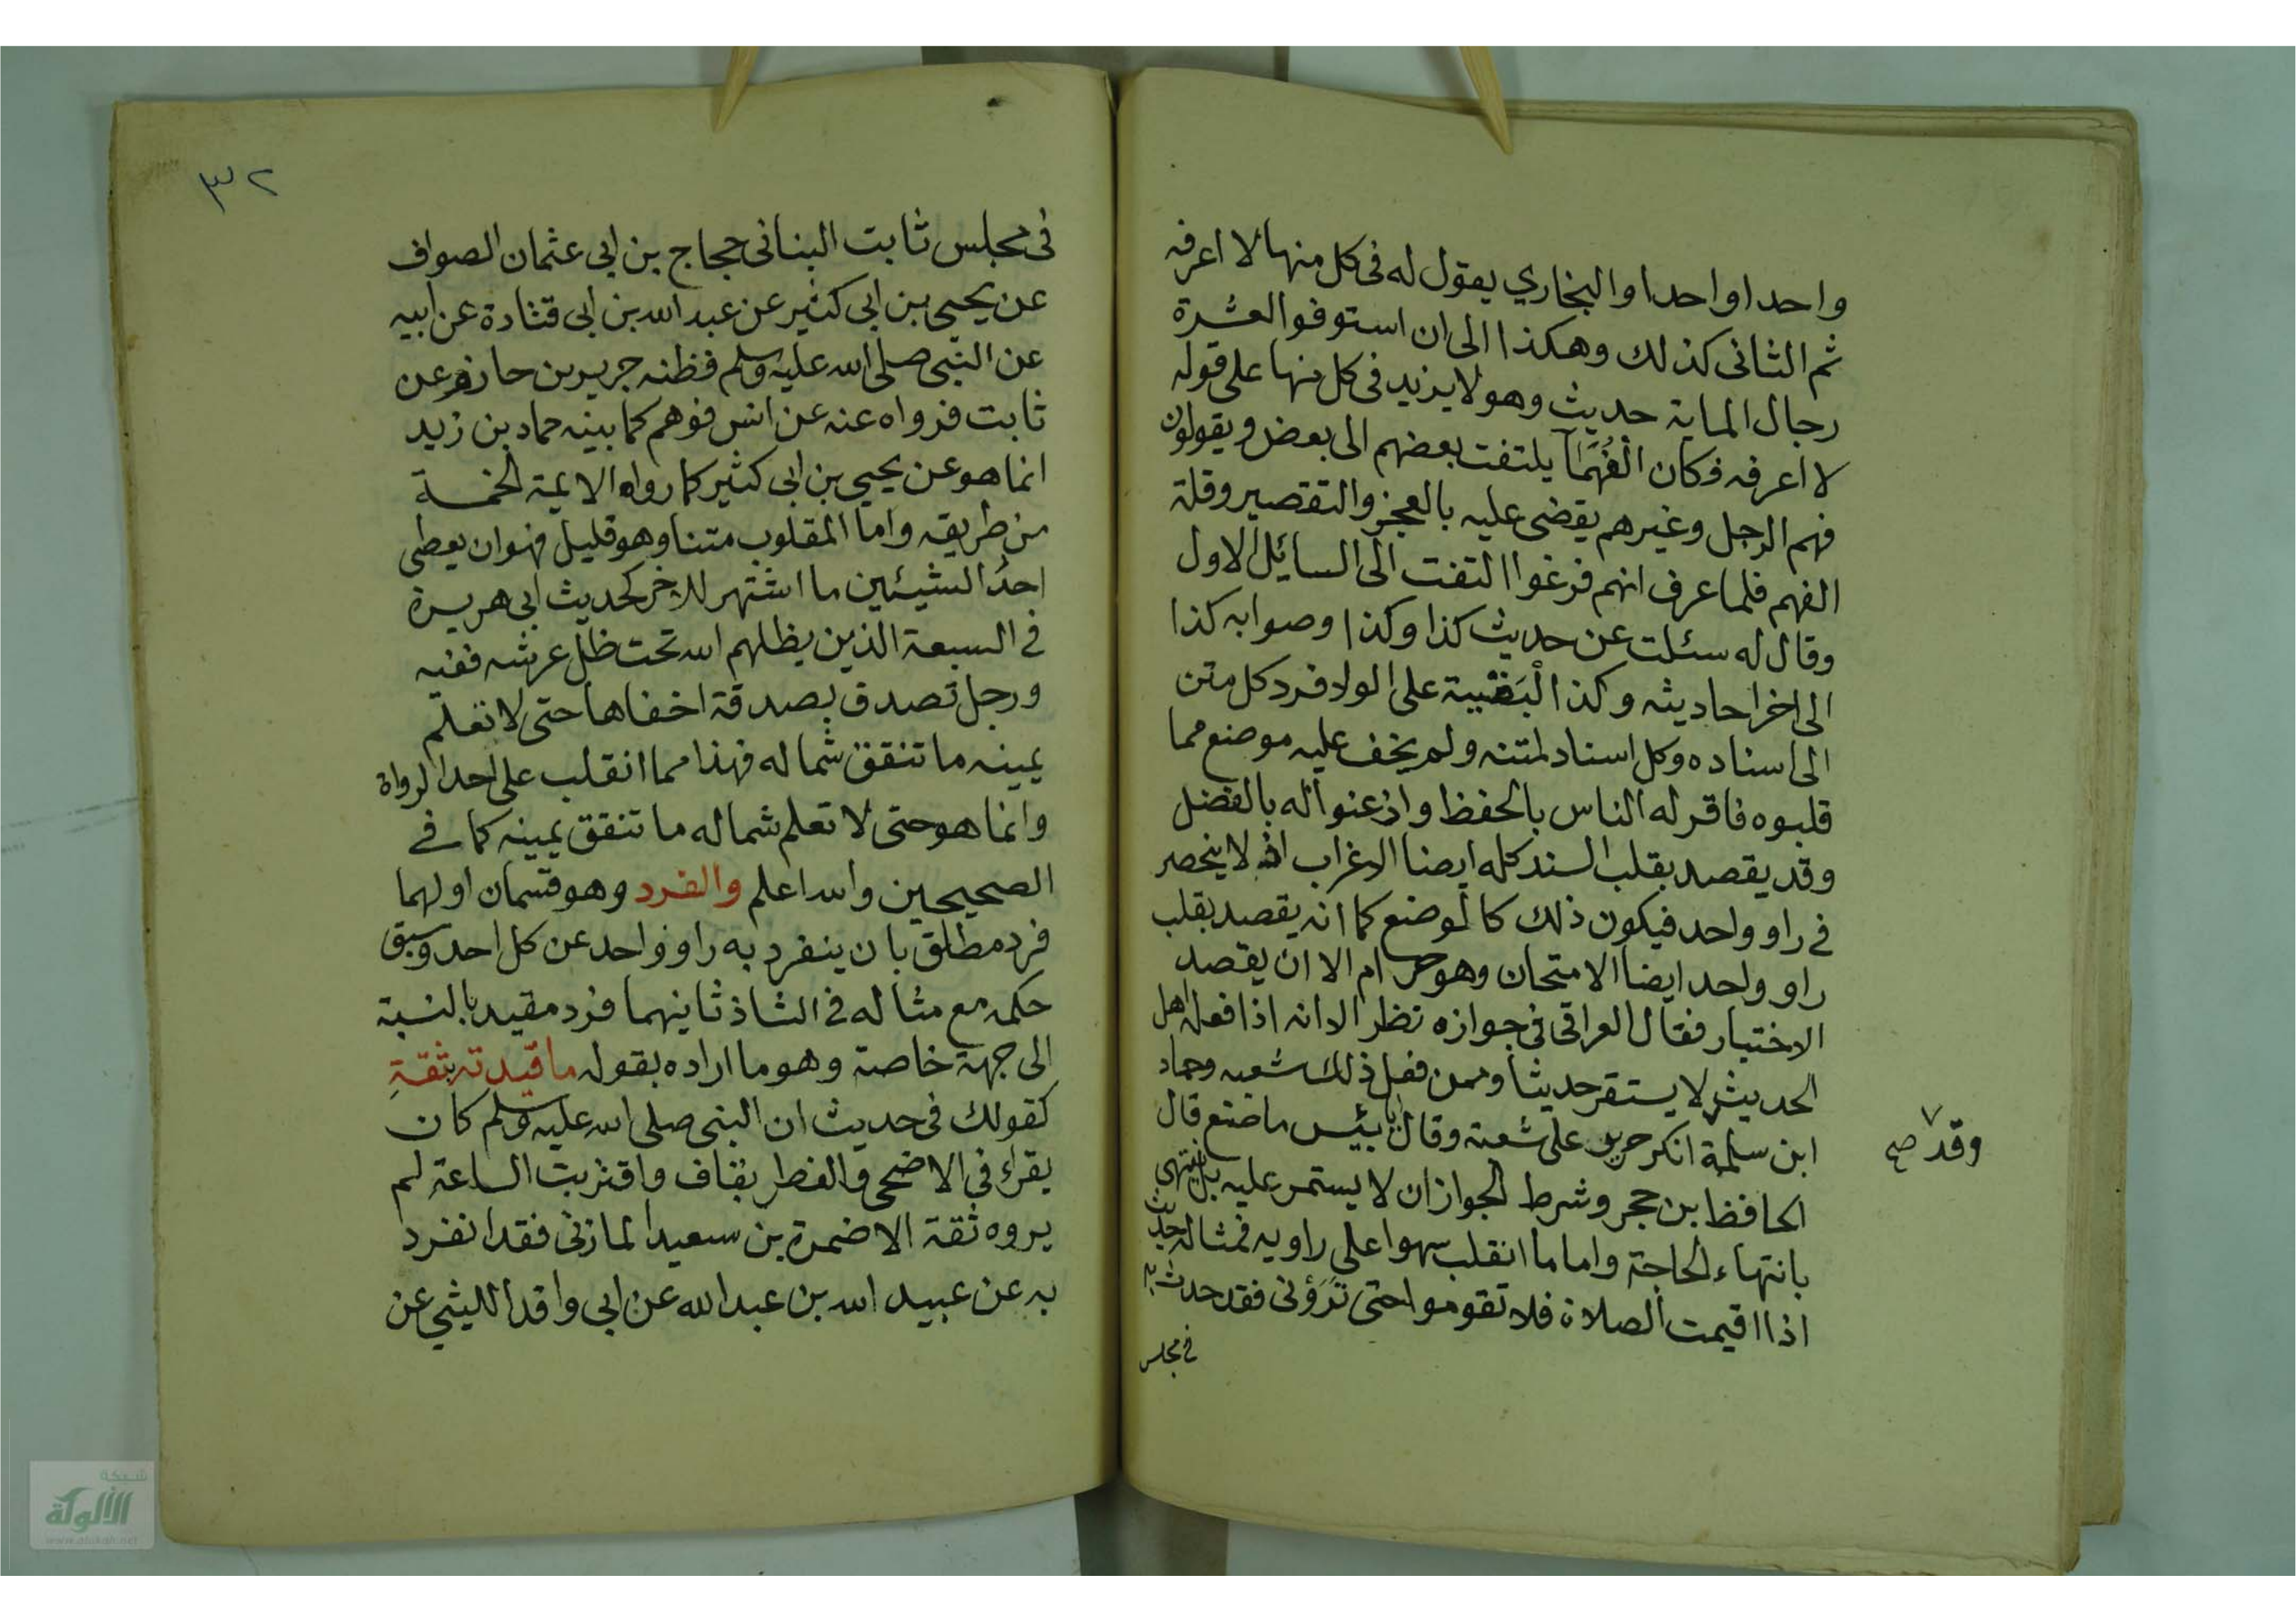 واحدا واحدا والبخاري يقول له فى كل منها لا اعرفه
ثم الثانى كذلك وهكذا الى ان استوفوا العشرة
رجال الماية حديث وهو لا يزيد فى كل منها على قوله
لا اعرفه فكان الفُهَمَآ يلتفت بعضهم الى بعض ويقولون
فهم الرجل وغيرهم يقضى عليه بالعجز والتقصير وقلة
الفهم فلما عرف انهم فرغوا التفت الى السايل الاول
وقال له سئلت عن حديث كذا وكذا وصوابه كذا
الى اخر احاديثه وكذا البَقيية على الولا فرد كل متن
الى اسناده وكل اسناد لمتنه ولم يخف عليه موضع مما
قلبوه فاقر له الناس بالحفظ واذعنوا له بالفضل
وقد يقصد بقلب السند كله ايضا الاغراب اذ لا ينحصر
فى راو واحد فيكون ذلك كالوضع كما انه يقصد بقلب
راو واحد ايضا الامتحان وهو حرام الا ان يقصد
الاختبار فقال العراقى فى جوازه نظر الا انه اذا فعله اهل
الحديث لا يستقر حديثا وممن فعل ذلك شعبه وحماد
ابن سلمة انكر حرمى على شعبة وقال يا بئيس ما صنع قال
وقد صح
الحافظ بن حجر وشرط الجواز ان لا يستمر عليه بل ينتهى
بانتهاء الحاجة واما ما انقلب سهوا على راويه فمثاله حديث
اذا اقيمت الصلاة فلا تقوموا حتى تَرَوْنى فقد حدث به
فى مجلس
٣٢
فى مجلس ثابت البنانى حجاج بن ابى عثمان الصواف
عن يحيى بن ابى كثير عن عبد الله بن ابى قتادة عن ابيه
عن النبى صلى الله عليه وسلم فظنه جرير بن حازم عن
ثابت فرواه عنه عن انس فوهم كما بينه حماد بن زيد
انما هو عن يحيى بن ابى كثير كما رواه الايمة الخمسة
من طريقه واما المقلوب متنا وهو قليل فهو ان يعطى
احدُ الشيئين ما اشتهر للاخر كحديث ابى هريرة
فى السبعة الذين يظلهم الله تحت ظل عرشه ففيه
ورجل تصدق بصدقة اخفاها حتى لا تعلم
يمينه ما تنفق شماله فهذا مما انقلب على احد الرواة
وانما هو حتى لا تعلم شماله ما تنفق يمينه كما فى
الصحيحين والله اعلم والفرد وهو قسمان اولهما
فرد مطلق بان ينفرد به راو واحد عن كل احد وسبق
حكمه مع مثاله فى الشاذ ثانيهما فرد مقيد بالنسبة
الى جهة خاصة وهو ما اراده بقوله ما قيدته بثقةِ
كقولك فى حديث ان النبى صلى الله عليه وسلم كان
يقراء فى الاضحى والفطر بقاف واقتربت الساعة لم
يروه ثقة الا ضمرة بن سعيد المازنى فقد انفرد
به عن عبيد الله بن عبد الله عن ابى واقد الليثي عن
شبكة
الألوكة
www.alukah.net